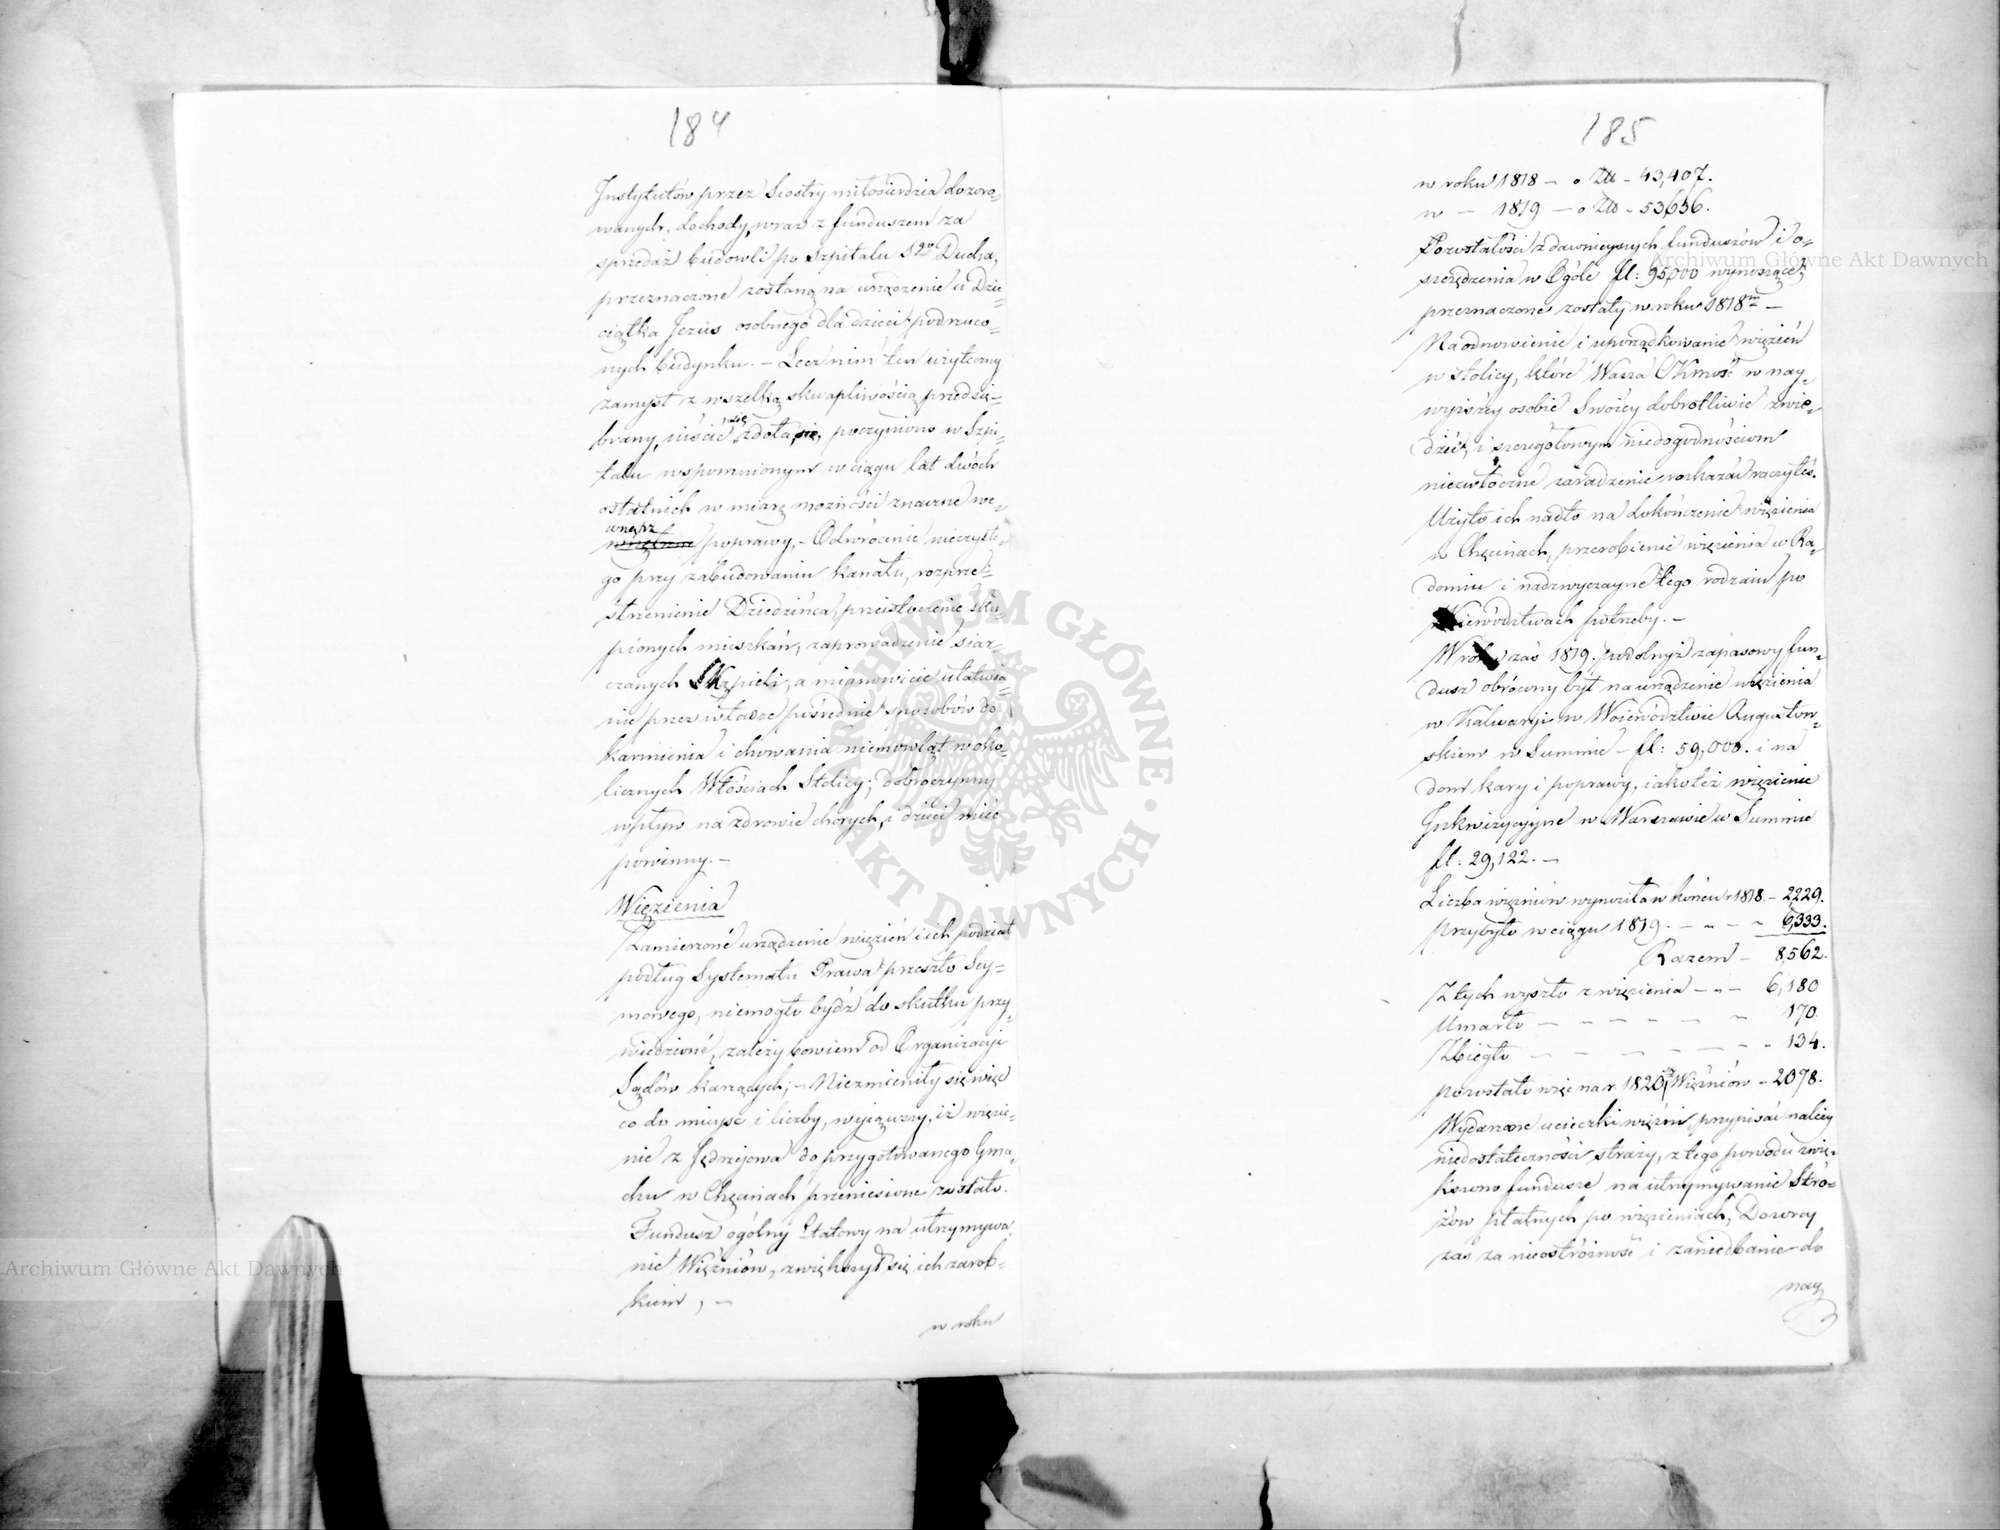 184
Instytutów przez Siostry miłosierdzia dozoro=
wanych, dochody, wraz z funduszem za
sprzedaż budowli po Szpitalu Sgo Ducha,
przeznaczone zostaną na urządzenie u Dzie=
ciątka Jezus osobnego dla dzieci podrzuco=
nych budynku. – Lecz nim ten użyteczny
zamysł z wszelką skrapliwością przedsię=
brany, uiścić się zdoła, poczyniono w Szpi=
talu wspomnionym w ciągu lat dwóch
ostatnich w miarę możności znaczne we=
wnętrz poprawy. – Odwrócenie nieczyste=
go przy zabudowaniu kanału, rozprze=
strzenienie Dziedzińca, przeistoczenie sku=
pionych mieszkań, zaprowadzenie siar=
czanych Kąpieli, a mianowicie ułatwie=
nie przez władze pośrednie sposobów do
karmienia i chowania niemowląt w oko=
licznych Włościach Stolicy; dobroczynny
wpływ na zdrowie chorych, i dzieci mieć
powinny. –
Więzienia
Zamierzone urządzenie więzień i ich podział
podług Systematu Prawa przeszło Sey=
mowego, niemogło bydź do skutku przy=
wiedzione, zależy bowiem od Organizacyi
Sądów karzących; – Niezmieniły się więc
co do mieysc i liczby, wyiąwszy, iż więzie=
nie z Jędrzejowa do przygotowanego Gma=
chu w Chęcinach przeniesione zostało.
Fundusz ogólny Etatowy na utrzymywa=
nie Więźniów, zwiększył się ich zarob=
kiem, –
w roku
185
w roku 1818 – o Złt – 43,407.
w – 1819 – o Złt – 53,656.
Pozostałości z dawnieyszych funduszów i o=
szczędzenia w Ogóle fl: 95,000 wynoszące,
przeznaczone zostały w roku 1818m –
Na odnowienie i uporządkowanie więzień
w stolicy, które Wasza CKmość w nay=
wyższey osobie Swoiey dobrotliwie zwie=
dzić, i szczegółowym niedogodnościom
niezwłoczne zaradzenie rozkazać raczyłeś.
Użyto ich nadto na dokończenie więzienia
w Chęcinach, przerobienie więzienia w Ra=
domiu i nadzwyczayne tego rodzaiu po
Wiewództwach potrzeby. –
W roku zaś 1819. podobnyż zapasowy fun=
dusz obrócony był na urządzenie więzienia
w Kalwaryi w Woiewództwie Augustow=
skiem w Summie – fl: 59,000. i na
dom kary i poprawy, iako też więzienie
Inkwizycyjne w Warszawie w Summie
fl: 29,122. –
Liczba więźniów wynosiła w końcu r 1818. – 2229.
przybyło w ciągu 1819. – – – – 6,333.
Razem – 8,562.
Z tych wyszło z więzienia – – – 6,180
Umarło – – – – – – – 170.
Zbiegło – – – – – – – 134.
pozostało więc na r 1820 Więźniów – 2078.
Wydarzone ucieczki więźni przypisać należy
niedostateczności straży, z tego powodu zwię=
kszono fundusze na utrzymywanie Stró=
żów płatnych po więzieniach, Dozorcy
zaś za nieostróżność i zaniedbanie do
nay
ARCHIWUM GŁÓWNE AKT DAWNYCH
Archiwum Główne Akt Dawnych
Archiwum Główne Akt Dawnych